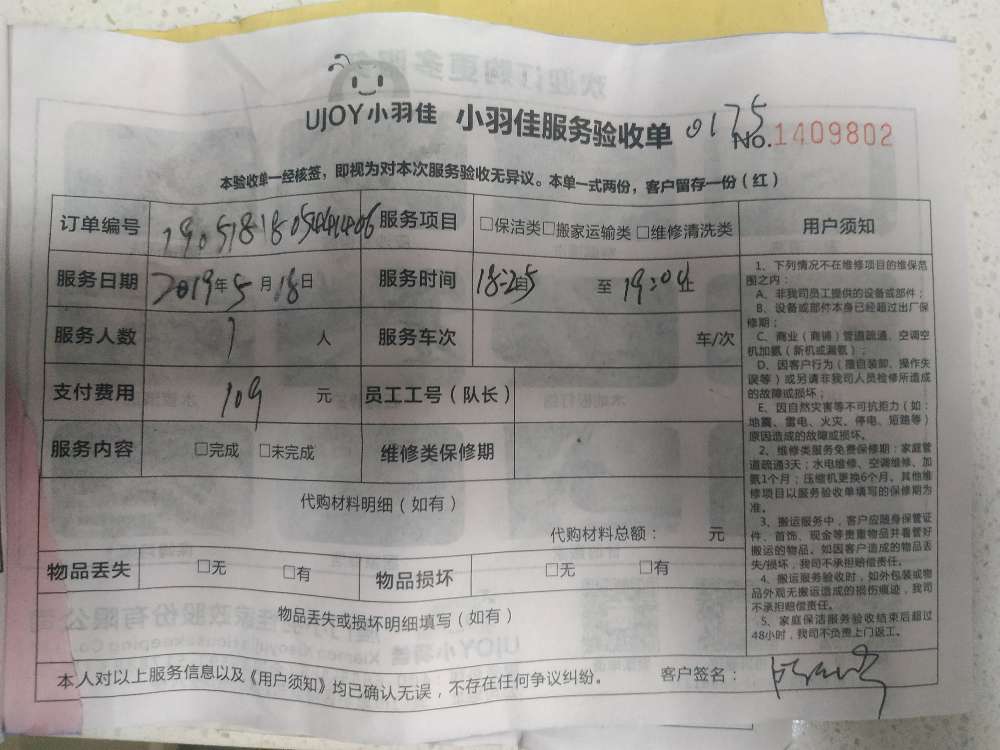 UJOY小羽佳 小羽佳服务验收单 0175
No.1409802
本验收单一经核签，即视为对本次服务验收无异议。本单一式两份，客户留存一份（红）
订单编号 服务项目 □保洁类□搬家运输类□维修清洗类 用户须知
服务日期 2019年5月18日 服务时间 18:25 至 19:04止
服务人数 1 人 服务车次 车/次
支付费用 109 元 员工工号（队长）
服务内容 □完成 □未完成 维修类保修期
代购材料明细（如有）
代购材料总额： 元
物品丢失 □无 □有 物品损坏 □无 □有
物品丢失或损坏明细填写（如有）
本人对以上服务信息以及《用户须知》均已确认无误，不存在任何争议纠纷。 客户签名：
1、下列情况不在维修项目的维保范
围之内：
A、非我司员工提供的设备或部件；
B、设备或部件本身已经超过出厂保
修期；
C、商业（商铺）管道疏通、空调空
机加氨（新机或漏氨）；
D、因客户行为（擅自装卸、操作失
误等）或另请非我司人员检修所造成
的故障或损坏；
E、因自然灾害等不可抗拒力（如：
地震、雷电、火灾、停电、短路等）
原因造成的故障或损坏。
2、维修类服务免费保修期：家庭管
道疏通3天；水电维修、空调维修、加
氨1个月；压缩机更换6个月。其他维
修项目以服务验收单填写的保修期为
准。
3、搬运服务中，客户应随身保管证
件、首饰、现金等贵重物品并看管好
搬运的物品。如因客户造成的物品丢
失/损坏，我司不承担赔偿责任。
4、搬运服务验收时，如外包装或物
品外观无搬运造成的损伤痕迹，我司
不承担赔偿责任。
5、家庭保洁服务验收结束后超过
48小时，我司不负责上门返工。